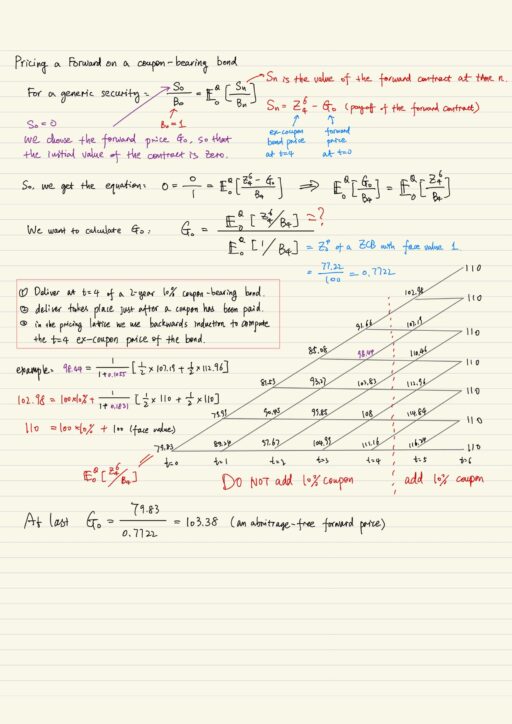 Pricing a Forward on a coupon-bearing bond
For a generic security: S₀/B₀ = E₀^Q [Sn/Bn]
Sn is the value of the forward contract at time n.
Sn = Z₄⁶ - G₀ (payoff of the forward contract)
S₀ = 0
B₀ = 1
ex-coupon bond price at t=4
forward price at t=0
We choose the forward price G₀, so that
the initial value of the contract is zero.
So, we get the equation: 0 = 0/1 = E₀^Q [(Z₄⁶ - G₀)/B₄] ⇒ E₀^Q [G₀/B₄] = E₀^Q [Z₄⁶/B₄]
We want to calculate G₀: G₀ = E₀^Q [Z₄⁶/B₄] / E₀^Q [1/B₄]
= ?
= Z₀⁴ of a ZCB with face value 1.
= 77.22/100 = 0.7722
① Deliver at t=4 of a 2-year 10% coupon-bearing bond.
② deliver takes place just after a coupon has been paid.
③ in the pricing lattice we use backwards induction to compute
the t=4 ex-coupon price of the bond.
example: 98.44 = 1/(1+0.1055) [½ × 107.19 + ½ × 110.46]
102.98 = 100×10% + 1/(1+0.1831) [½ × 110 + ½ × 110]
110 = 100×10% + 100 (face value)
110
102.98 110
91.66 107.19 110
85.08 98.44 110.46 110
81.53 93.27 103.83 112.96 110
79.99 90.45 99.85 108 114.84 110
79.83 89.24 97.67 104.99 111.16 116.24 110
t=0 t=1 t=2 t=3 t=4 t=5 t=6
E₀^Q [Z₄⁶/B₄]
DO NOT add 10% coupon
add 10% coupon
At last G₀ = 79.83/0.7722 = 103.38 (an abritrage-free forward price)